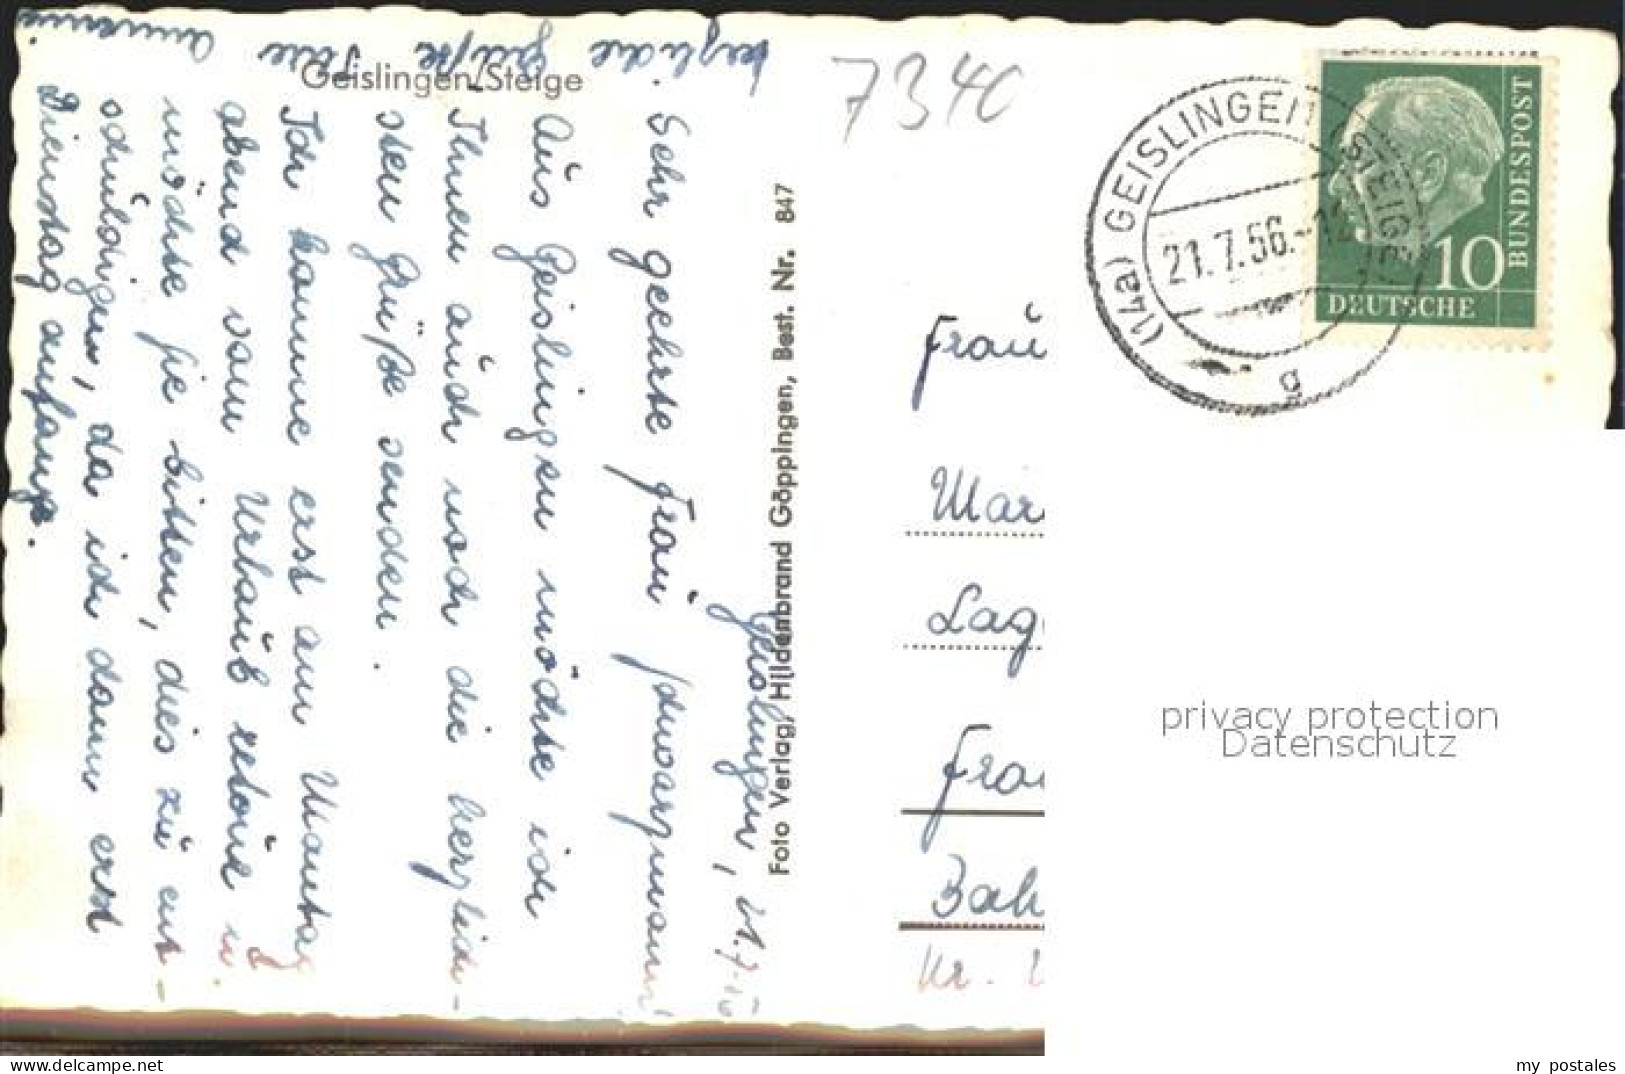 Geislingen/Steige
7340
Geislingen, 21.7.56
Sehr geehrte Frau
Aus Geislingen möchte ich
Ihnen auch noch die herzlich-
sten Grüße senden.
Ich komme erst am Montag
abend vom Urlaub retour u.
möchte Sie bitten, dies zu ent-
schuldigen, da ich dann erst
Dienstag anfange.
Herzliche Grüße Ihre Annemie
Foto Verlag, Hildenbrand Göppingen, Best. Nr. 847
(14a) GEISLINGEN (STEIGE)
21.7.56.-12
a
10
DEUTSCHE
BUNDESPOST
Frau
Mar
Lag
Frau
Bah
Nr.
privacy protection
Datenschutz
my postales